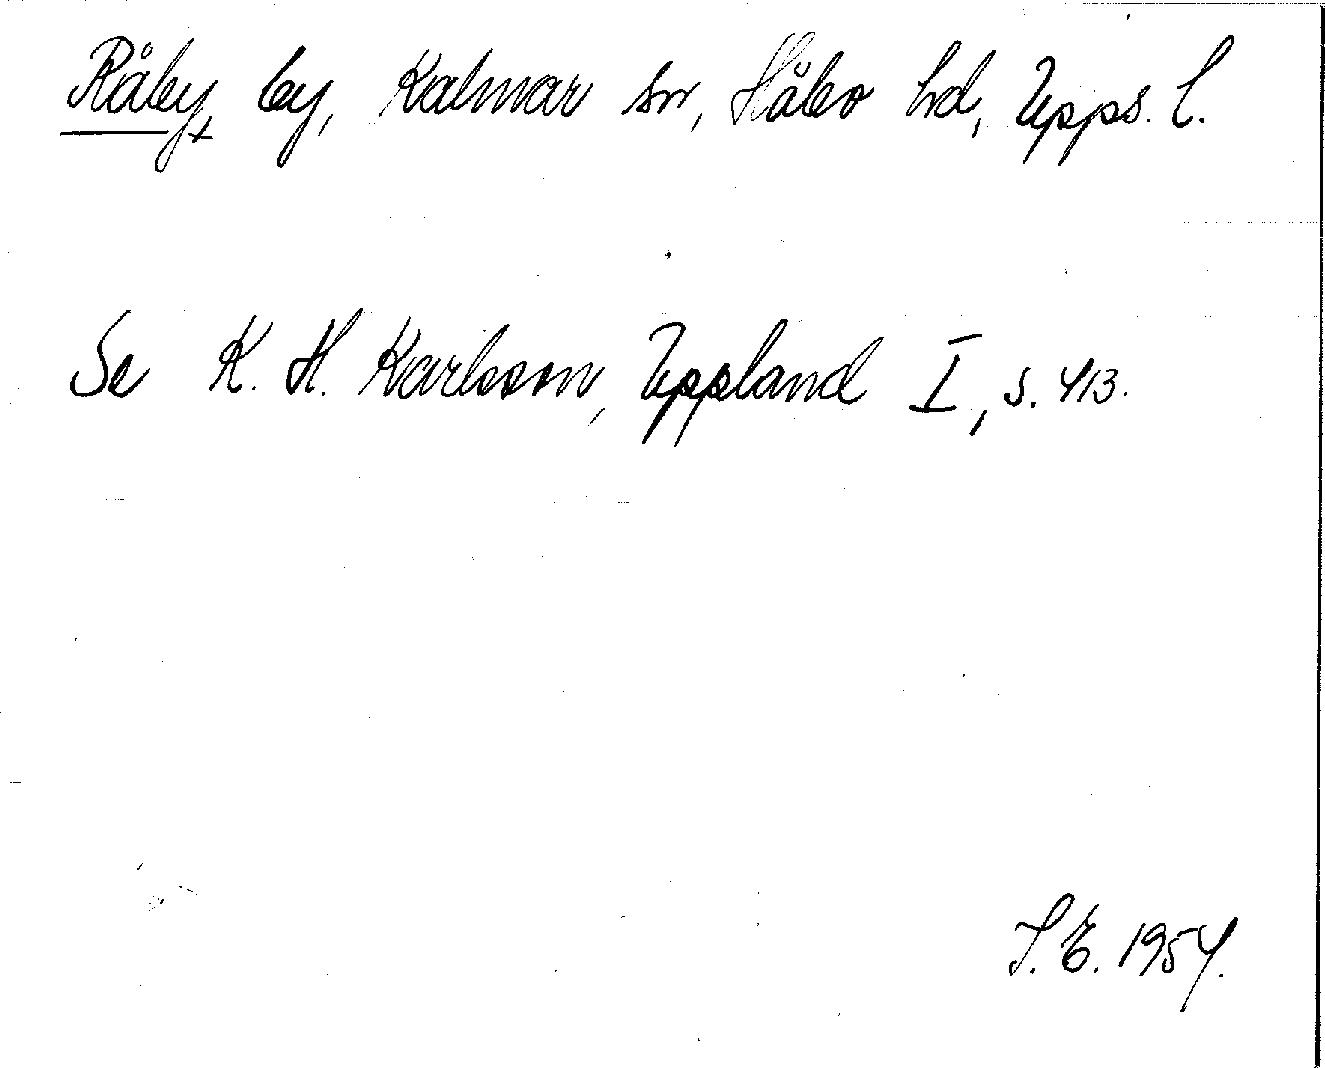 Råby, by, Kalmar sn, Håbo hd, Upps. l.
Se K. H. Karlsson, Uppland I, s. 413.
S. E. 1954.